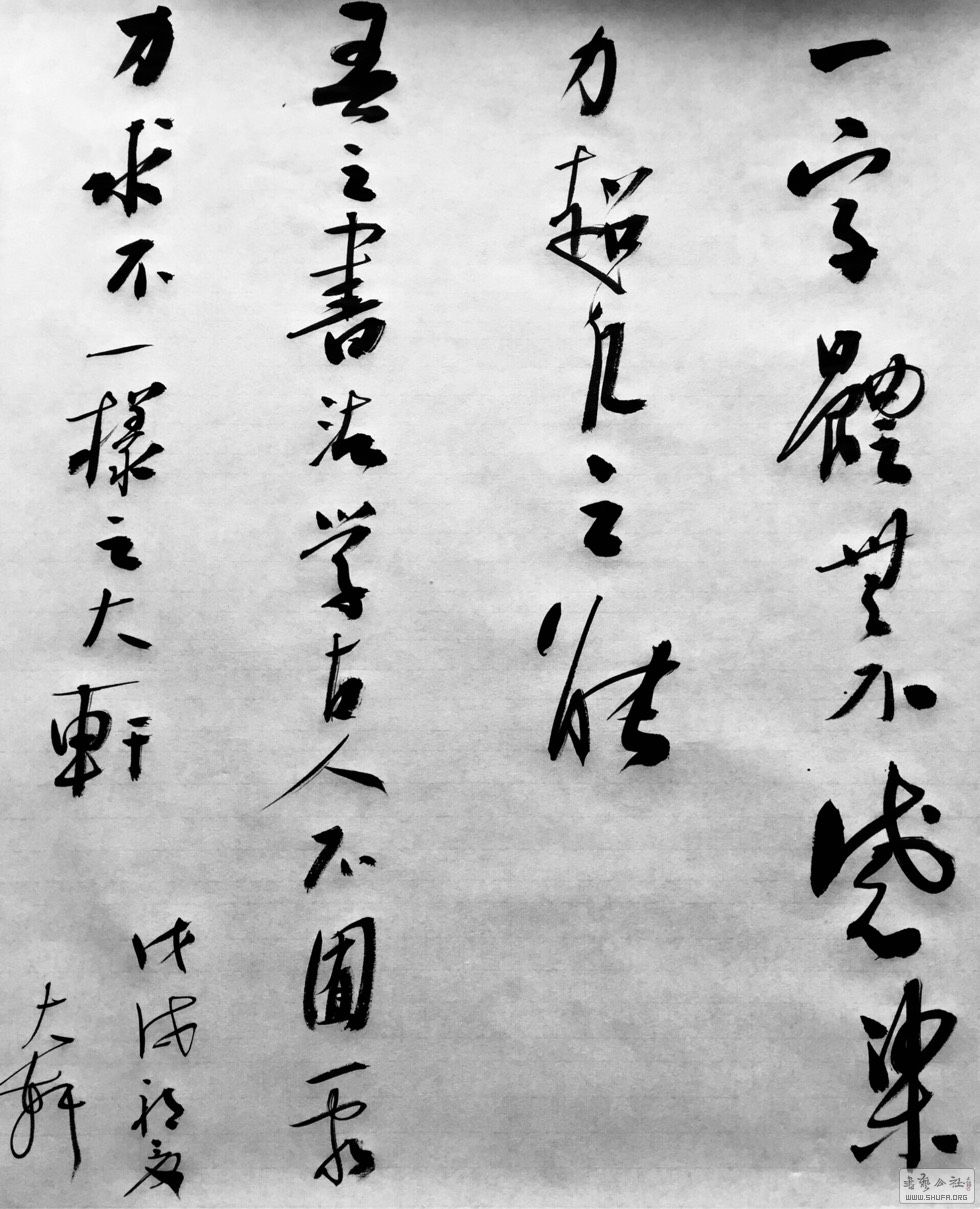 一字體無不感染
力超凡之能
吾之書法学古人不囿一家
力求不一樣之大軒
戊戌初夏
大軒
WWW.SHUFA.ORG